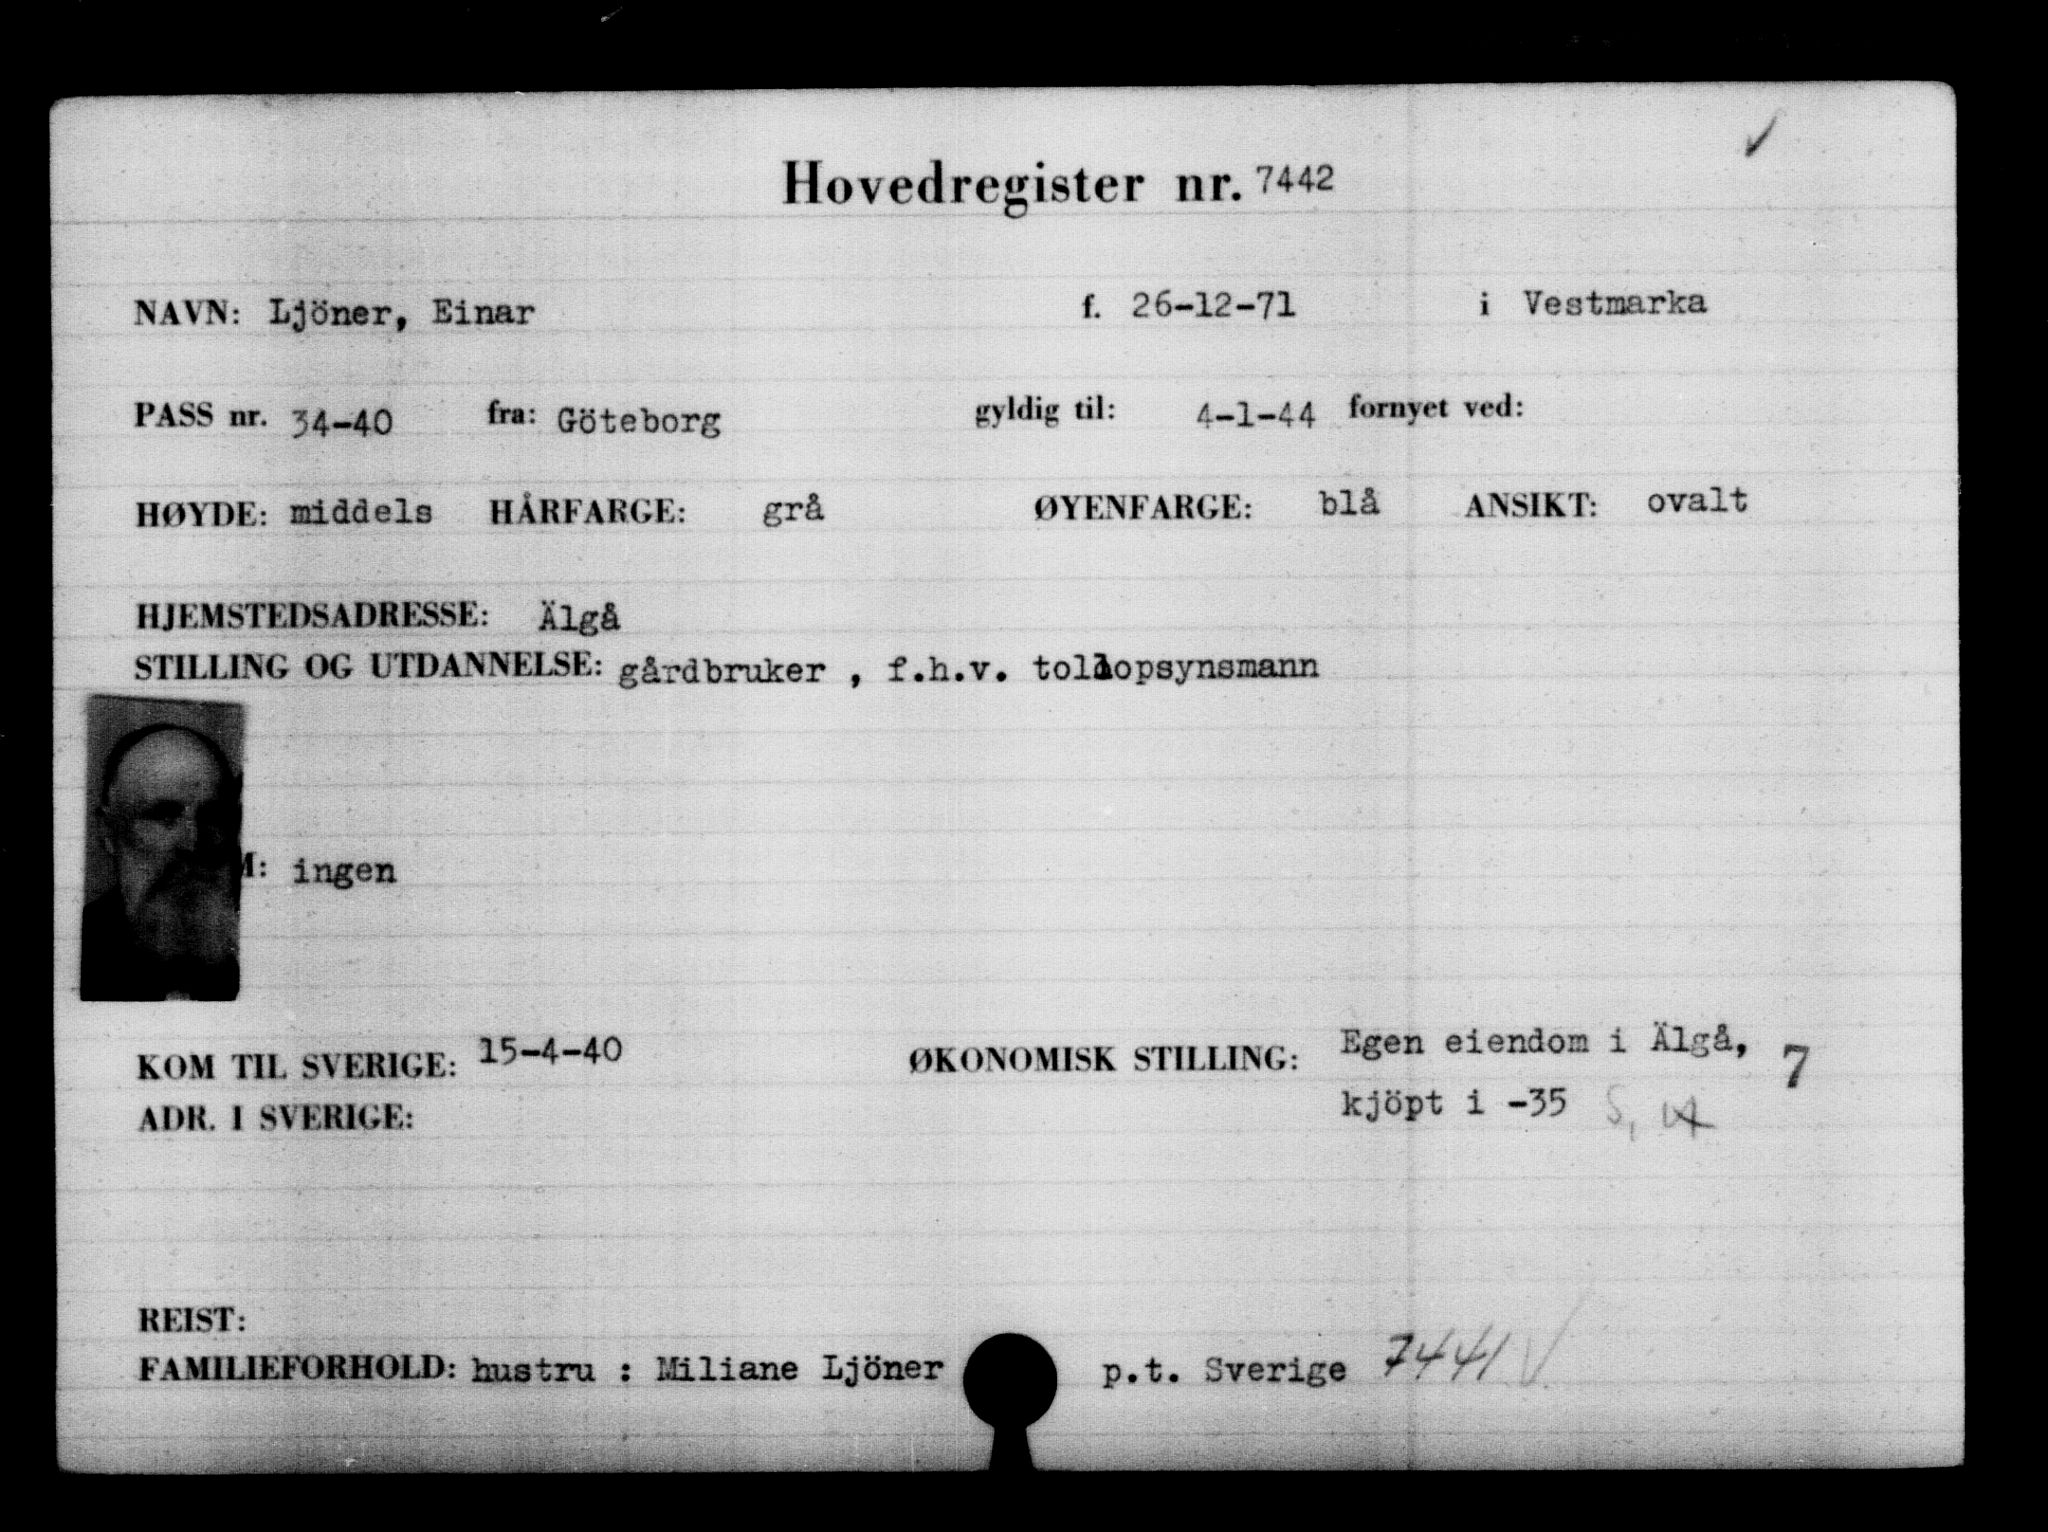 Hovedregister nr. 7442
NAVN: Ljöner, Einar f. 26-12-71 i Vestmarka
PASS nr. 34-40 fra: Göteborg gyldig til: 4-1-44 fornyet ved:
HØYDE: middels HÅRFARGE: grå ØYENFARGE: blå ANSIKT: ovalt
HJEMSTEDSADRESSE: Älgå
STILLING OG UTDANNELSE: gårdbruker , f.h.v. tollopsynsmann
M: ingen
KOM TIL SVERIGE: 15-4-40 ØKONOMISK STILLING: Egen eiendom i Älgå, 7
kjöpt i -35
ADR. I SVERIGE:
REIST:
FAMILIEFORHOLD: hustru : Miliane Ljöner p.t. Sverige 7441